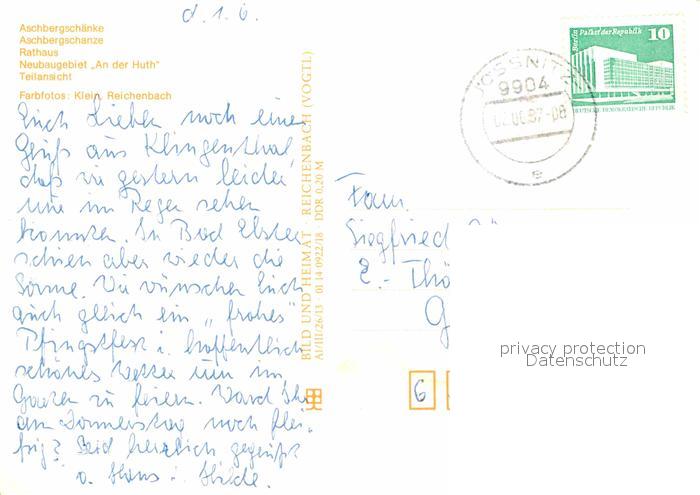 d. 1. 6.
Aschbergschänke
Aschbergschanze
Rathaus
Neubaugebiet „An der Huth"
Teilansicht
Farbfotos: Klein, Reichenbach
Euch Lieben noch einen
Gruß aus Klingenthal,
daß wir gestern leider
nur im Regen sehen
konnten. In Bad Elster
schien aber wieder die
Sonne. Wir wünschen Euch
auch gleich ein „frohes"
Pfingstfest u. hoffentlich
schönes Wetter um im
Garten zu feiern. Ward Ihr
am Donnerstag noch flei-
ßig? Seid herzlich gegrüßt
v. Hans u. Hilde.
BILD UND HEIMAT · REICHENBACH (VOGTL)
A1/III/26/13 · 01 14 0922/18 DDR 0,20 M
Berlin Palast der Republik
10
DEUTSCHE DEMOKRATISCHE REPUBLIK
JOSSNITZ
9904
02.06.87-08
e
Fam.
Siegfried
E.-Thö
G
privacy protection
Datenschutz
6